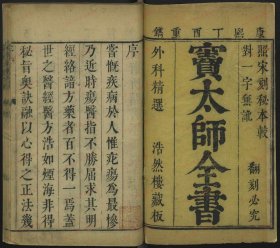 康熙丁酉重鐫
照宋刻秘本較
對一字無訛
翻刻必究
竇太師全書
外科精選 浩然樓藏板
序
嘗慨疾病於人惟疕瘍為最慘
乃近時瘍醫指不勝屈求其明
經絡諳方藥者百不得一焉蓋
世之醫經醫方浩如煙海非得
秘旨奧訣融以心得之正法幾